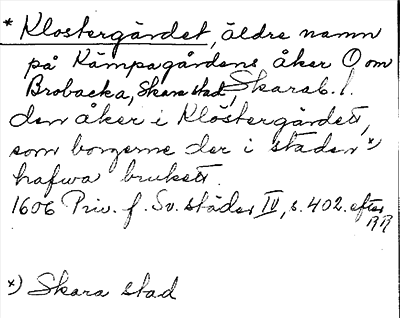 * Klostergärdet, äldre namn
på Kämpagårdens åker O om
Brobacka, Skara stad, Skarab. l.
den åker i Klöstergärdett,
som borgerne der i staden *)
hafwa brukett.
1606 Priv. f. Sv. städer IV, s. 402. efter
RR
*) Skara stad